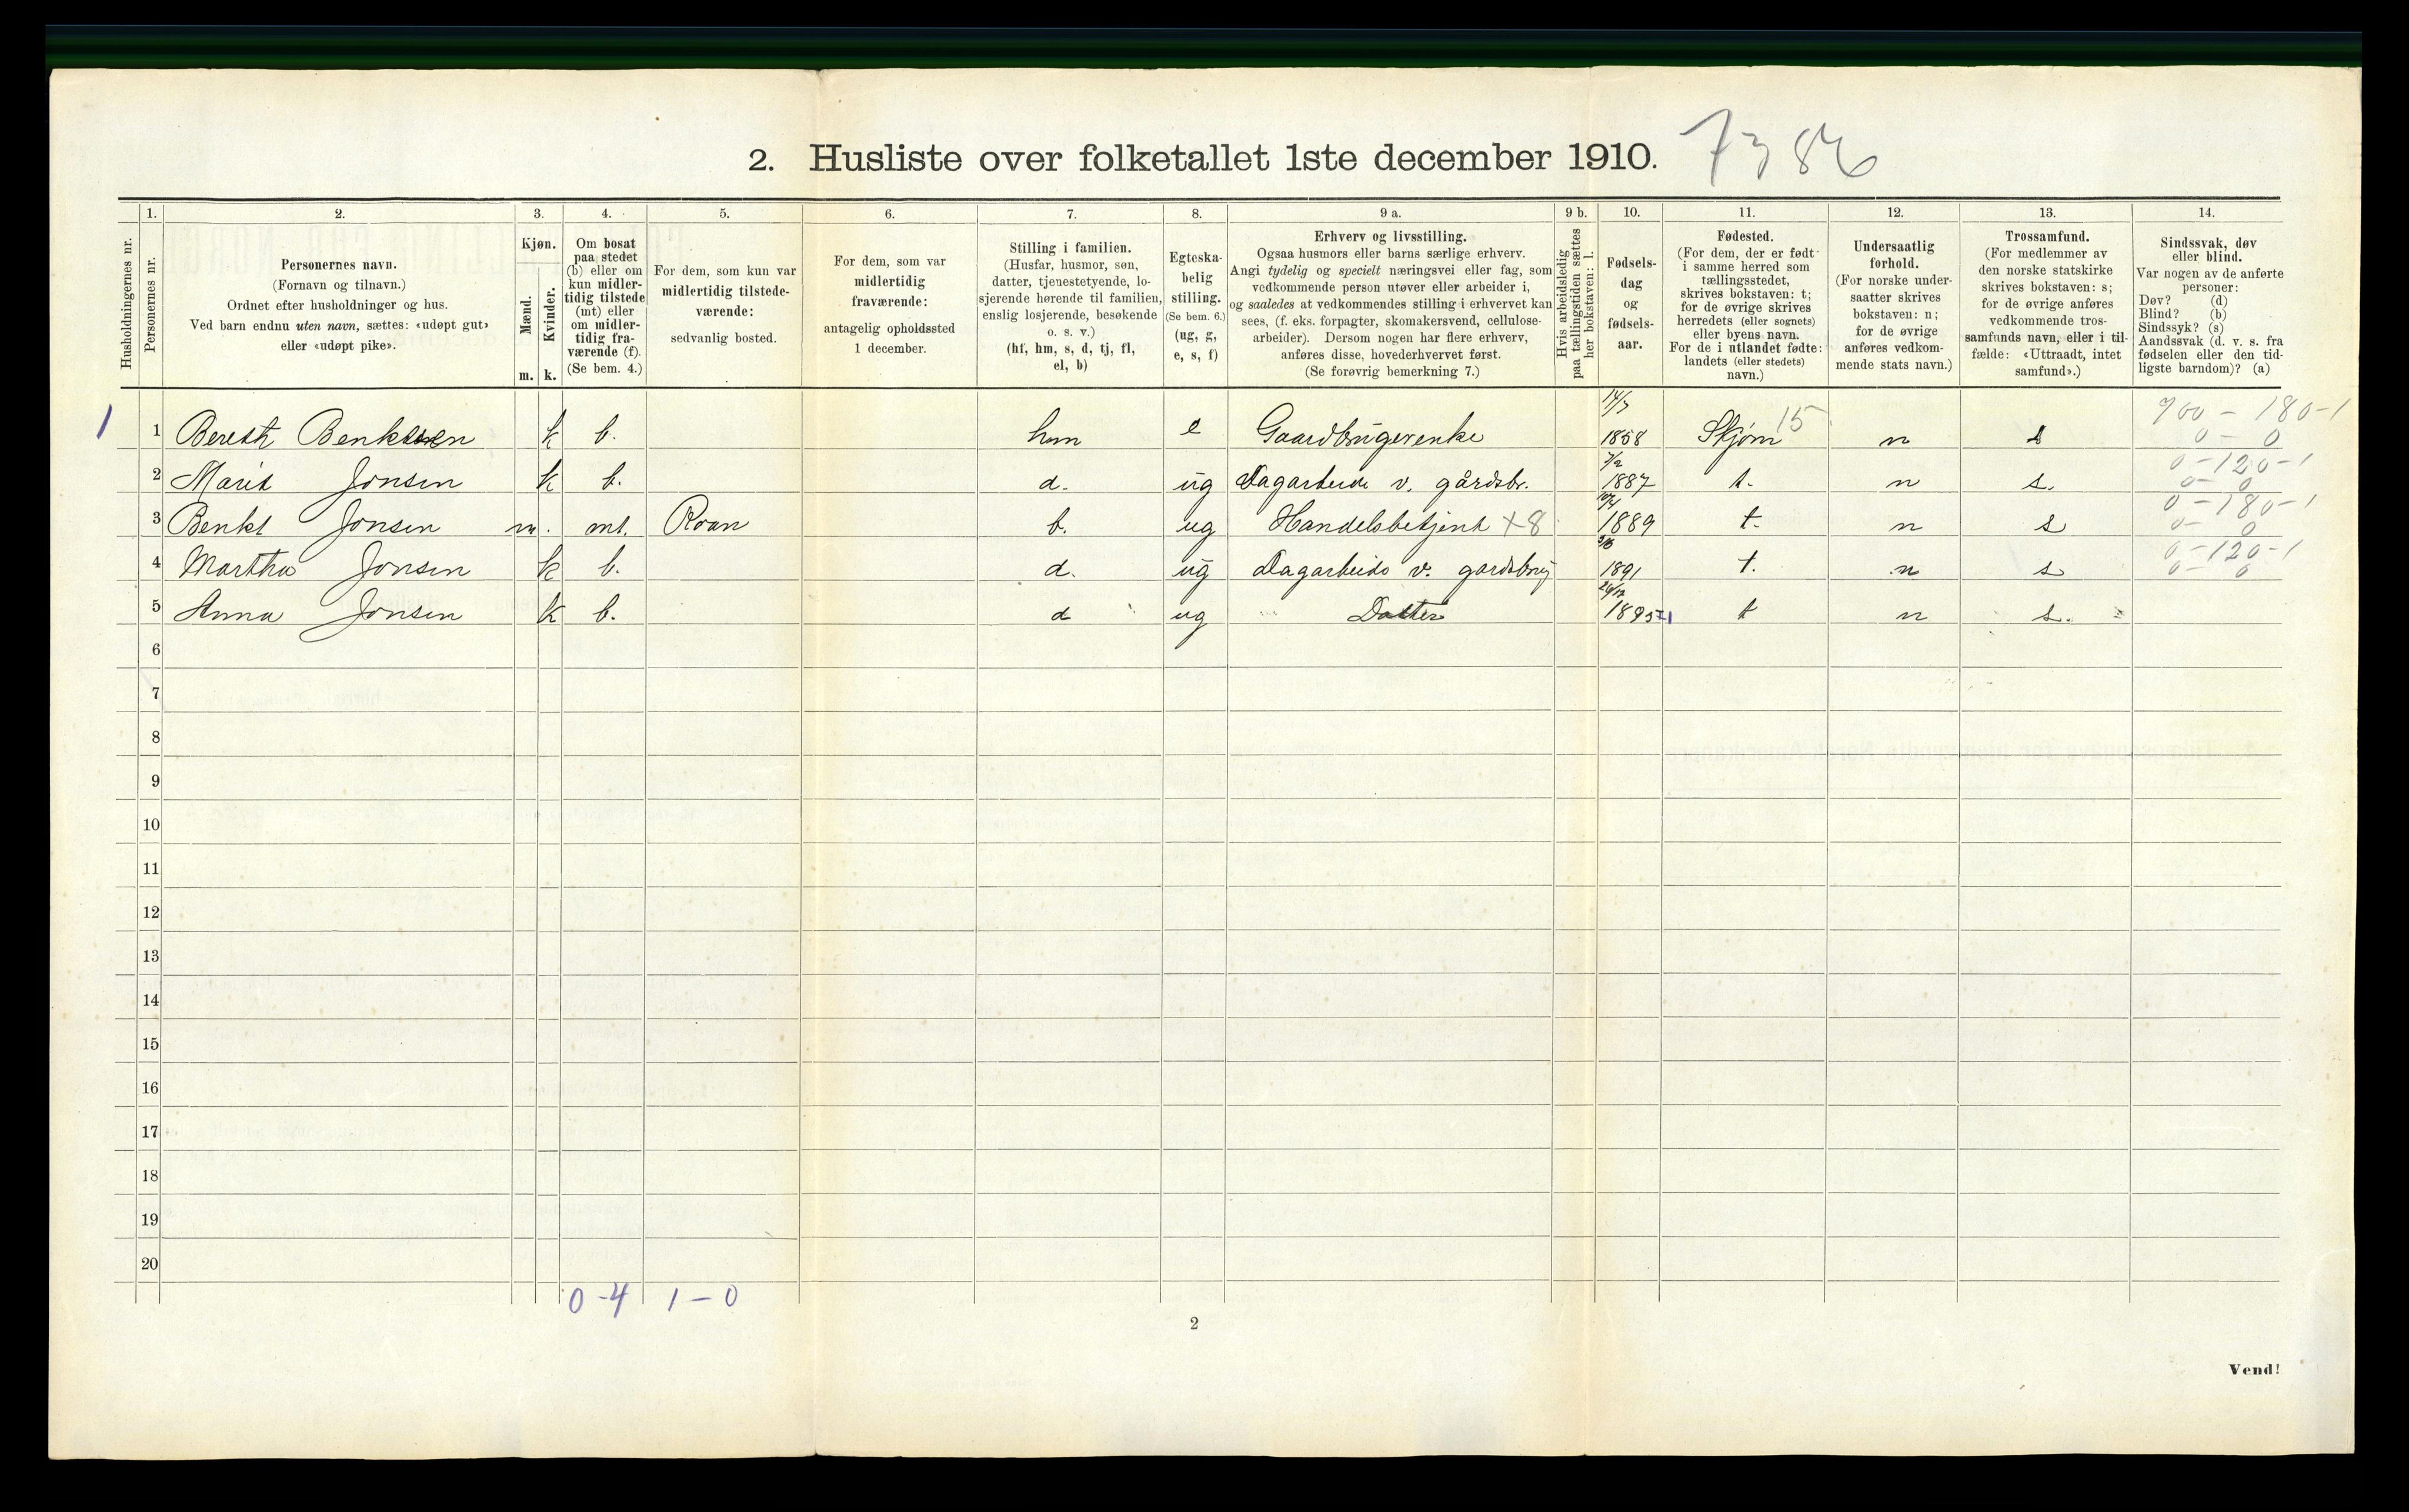 2. Husliste over folketallet 1ste december 1910. 7386
Husholdningernes nr.
1. Personernes nr.
2. Personernes navn.
(Fornavn og tilnavn.)
Ordnet efter husholdninger og hus.
Ved barn endnu uten navn, sættes: «udøpt gut»
eller «udøpt pike».
3. Kjøn.
Mænd. Kvinder.
m. k.
4. Om bosat
paa stedet
(b) eller om
kun midler-
tidig tilstede
(mt) eller
om midler-
tidig fra-
værende (f).
(Se bem. 4.)
5. For dem, som kun var
midlertidig tilstede-
værende:
sedvanlig bosted.
6. For dem, som var
midlertidig
fraværende:
antagelig opholdssted
1 december.
7. Stilling i familien.
(Husfar, husmor, søn,
datter, tjenestetyende, lo-
sjerende hørende til familien,
enslig losjerende, besøkende
o. s. v.)
(hf, hm, s, d, tj, fl,
el, b)
8. Egteska-
belig
stilling.
(Se bem. 6.)
(ug, g,
e, s, f)
9 a. Erhverv og livsstilling.
Ogsaa husmors eller barns særlige erhverv.
Angi tydelig og specielt næringsvei eller fag, som
vedkommende person utøver eller arbeider i,
og saaledes at vedkommendes stilling i erhvervet kan
sees, (f. eks. forpagter, skomakersvend, cellulose-
arbeider). Dersom nogen har flere erhverv,
anføres disse, hovederhvervet først.
(Se forøvrig bemerkning 7.)
9 b. Hvis arbeidsledig
paa tællingstiden sættes
her bokstaven: l.
10. Fødsels-
dag
og
fødsels-
aar.
11. Fødested.
(For dem, der er født
i samme herred som
tællingsstedet,
skrives bokstaven: t;
for de øvrige skrives
herredets (eller sognets)
eller byens navn.
For de i utlandet fødte:
landets (eller stedets)
navn.)
12. Undersaatlig
forhold.
(For norske under-
saatter skrives
bokstaven: n;
for de øvrige
anføres vedkom-
mende stats navn.)
13. Trossamfund.
(For medlemmer av
den norske statskirke
skrives bokstaven: s;
for de øvrige anføres
vedkommende tros-
samfunds navn, eller i til-
fælde: «Uttraadt, intet
samfund».)
14. Sindssvak, døv
eller blind.
Var nogen av de anførte
personer:
Døv? (d)
Blind? (b)
Sindssyk? (s)
Aandssvak (d. v. s. fra
fødselen eller den tid-
ligste barndom)? (a)
1 1 Bereth k b. hm e Gaardbrugerenke 14/3 1858 Skjørn 15 n s 900 - 180-1 0 - 0
2 Marit Jonsen k b. d. ug Dagarbeide v. gårdsbr. 7/2 1887 t. n s. 0-120-1 0- 0
3 Benkt Jonsen m. mt. Roan b. ug Handelsbetjent +8 1889 t. n s 0-180-1 0- 0
4 Martha Jonsen k b. d. ug Dagarbeide v. gardsbrug 1891 t. n s 0-120-1 0- 0
5 Anna Jonsen k b. d ug Datter 1895 t n s.
6
7
8
9
10
11
12
13
14
15
16
17
18
19
20
0-4 1-0
2
Vend!